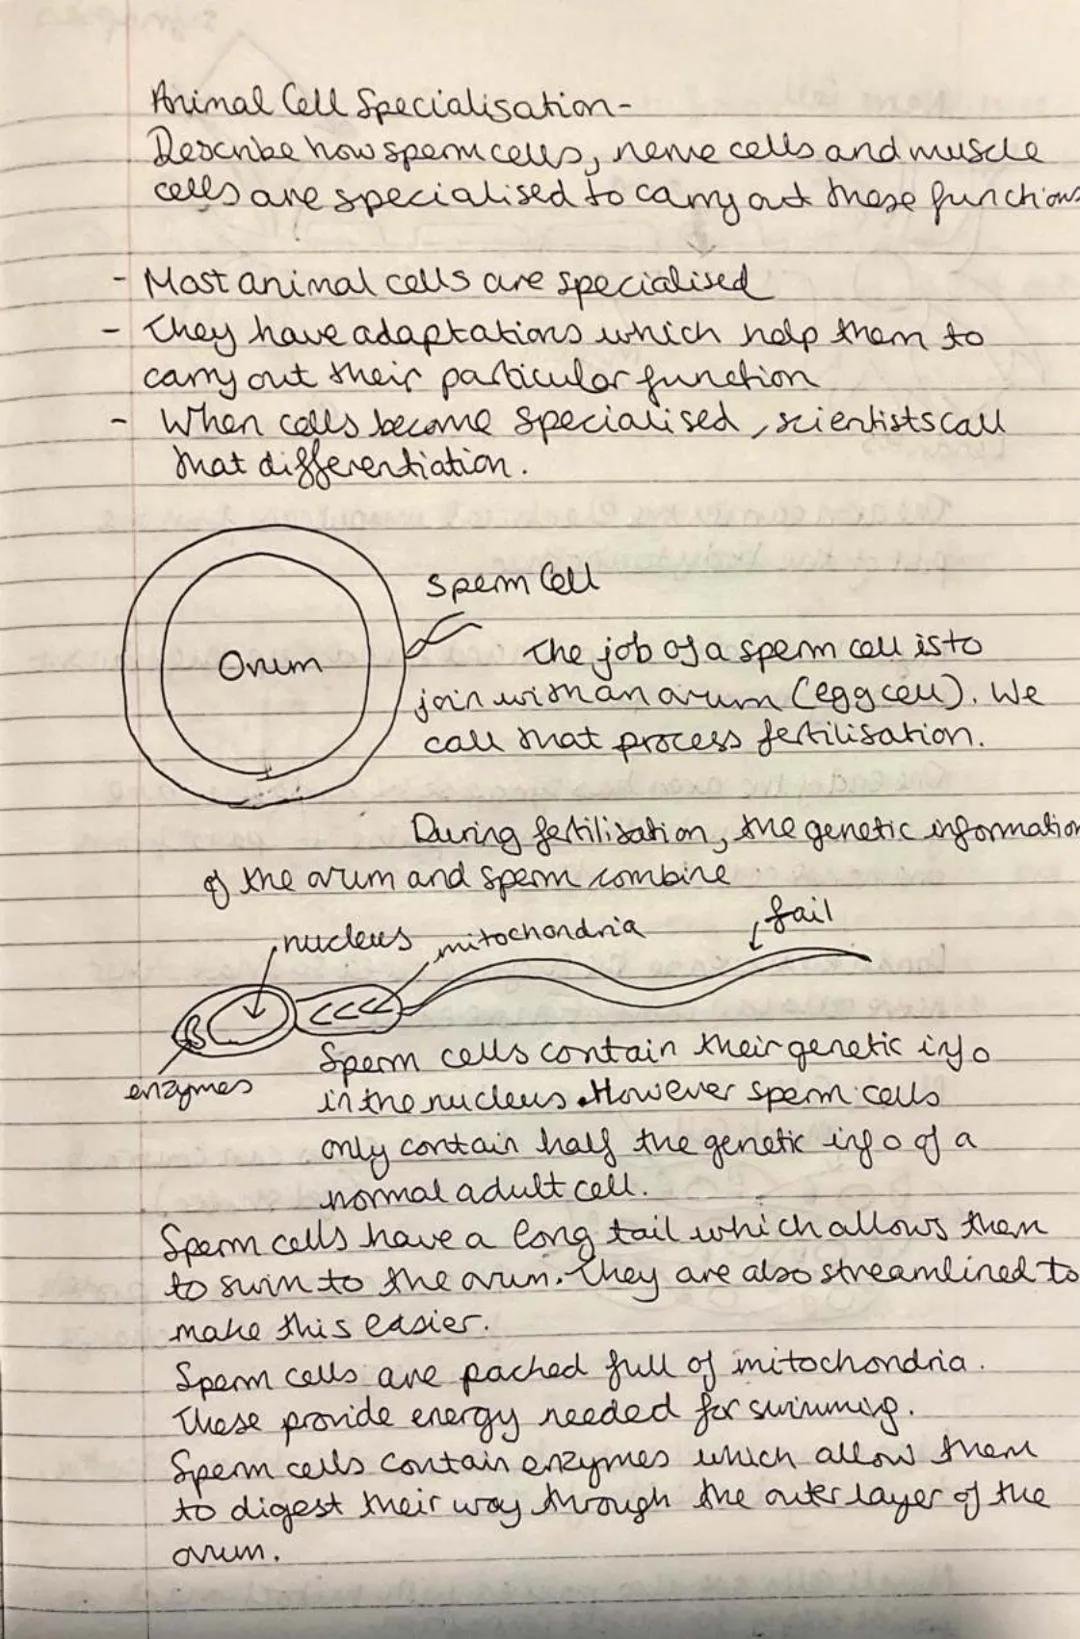 Animal Cell Specialisation-
Describe how sperm cells, nerve cells and muscle
cells are specialised to carry out these functions
- Most animal cells are specialised
- They have adaptations which help them to
carry out their particular function
- When cells become specialised, scientists call
that differentiation.
Sperm Cell
Ovum
The job of a sperm cell is to
join with an ovum (egg cell). We
call that process fertilisation.
During fertilisation, the genetic information
of the ovum and sperm combine
nucleus mitochondria tail
enzymes
Sperm cells contain their genetic info
in the nucleus. However sperm cells
only contain half the genetic info of a
normal adult cell.
Sperm cells have a long tail which allows them
to swim to the ovum. They are also streamlined to
make this easier.
Sperm cells are packed full of mitochondria.
These provide energy needed for swimming.
Sperm cells contain enzymes which allow them
to digest their way through the outer layer of the
ovum.